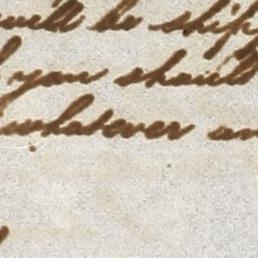 will be ship
you should
whatever an